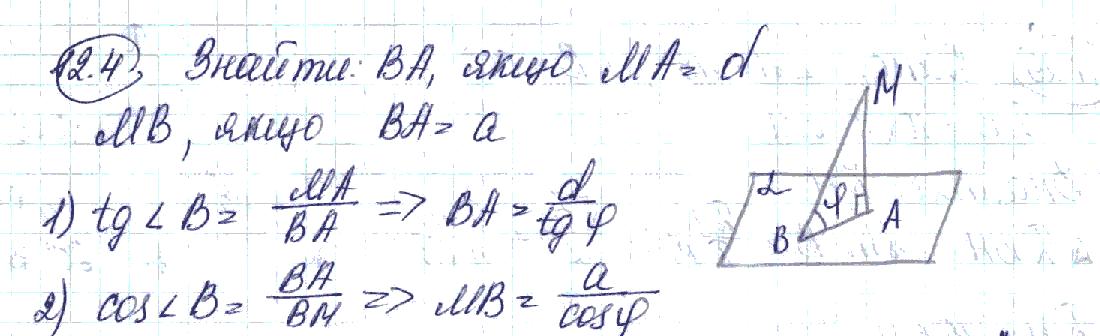 12.4, Знайти: BA, якщо MA = d
MB, якщо BA = a
1) tg < B = MA/BA => BA = d/tg φ
2) cos < B = BA/BM => MB = a/cos φ
M
α
φ
A
B